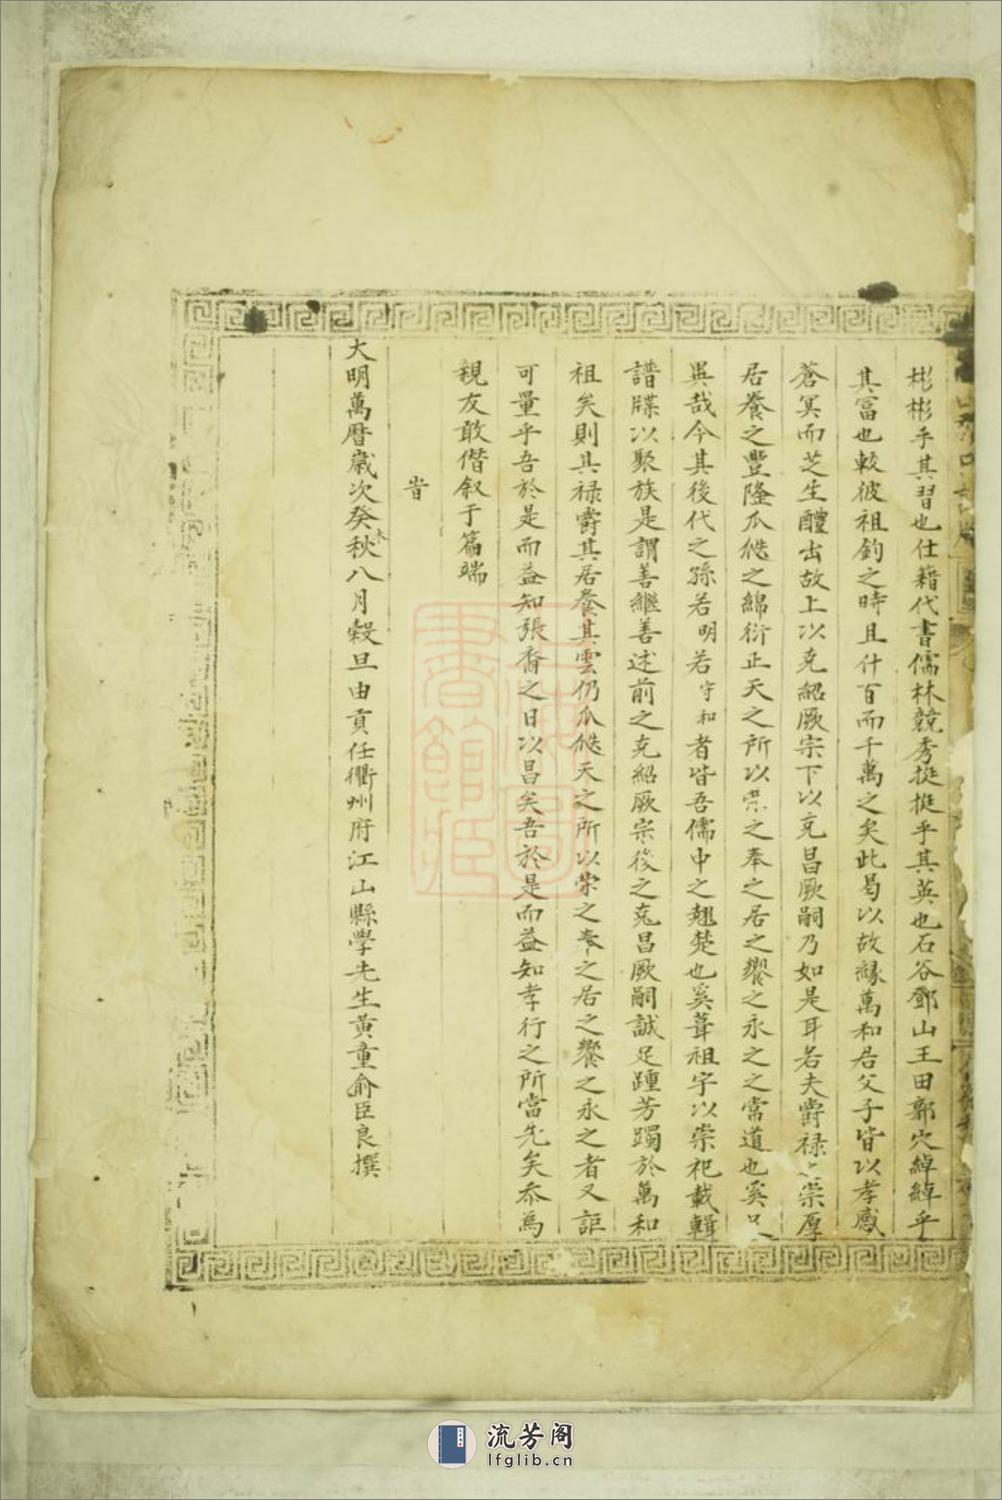 彬彬乎其習也仕籍代書儒林競秀挺挺乎其英也石谷鄧山王田郭穴綽綽乎
其富也較彼祖鈞之時且什百而千萬之矣此曷以故緣萬和君父子皆以孝感
蒼冥而芝生醴出故上以克紹厥宗下以克昌厥嗣乃如是耳若夫爵祿之崇厚
居養之豐隆瓜瓞之綿衍正天之所以崇之奉之居之饗之永之之常道也奚足
異哉今其後代之孫若明若守和者皆吾儒中之翹楚也奚葺祖宇以崇祀載輯
譜牒以聚族是謂善繼善述前之克紹厥宗後之克昌厥嗣誠足踵芳躅於萬和
祖矣則其祿爵其居養其雲仍瓜瓞天之所以崇之奉之居之饗之永之者又詎
可量乎吾於是而益知張裔之日以昌矣吾於是而益知孝行之所當先矣忝為
親友敢僭叙于篇端
旹
大明萬曆歲次癸未秋八月穀旦由貢任衢州府江山縣學先生黃童俞臣良撰
海圖
書館藏
流芳阁
lfglib.cn